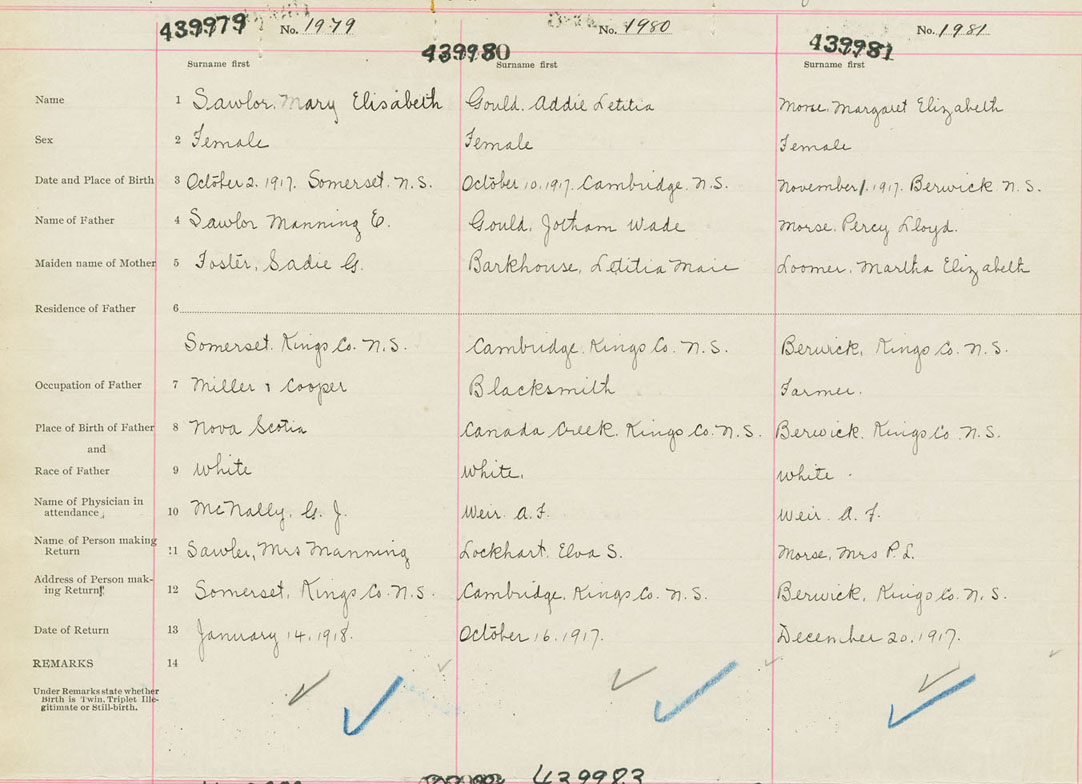 439979 No. 1979 439980 No. 1980 439981 No. 1981
Surname first Surname first Surname first
Name 1 Sawlor, Mary Elisabeth Gould, Addie Letitia Morse, Margaret Elizabeth
Sex 2 Female Female Female
Date and Place of Birth 3 October 2. 1917. Somerset. N.S. October 10. 1917. Cambridge. N.S. November 1. 1917. Berwick N.S.
Name of Father 4 Sawlor Manning E. Gould, Jotham Wade Morse, Percy Lloyd.
Maiden name of Mother 5 Foster, Sadie G. Barkhouse, Letitia Maie Loomer, Martha Elizabeth
Residence of Father 6
Somerset. Kings Co. N.S. Cambridge. Kings Co. N.S. Berwick, Kings Co. N.S.
Occupation of Father 7 Miller & Cooper Blacksmith Farmer.
Place of Birth of Father 8 Nova Scotia Canada Creek. Kings Co. N.S. Berwick. Kings Co. N.S.
and
Race of Father 9 White White. White
Name of Physician in
attendance 10 McNally, G. J. Weir. A. F. Weir. A. F.
Name of Person making
Return 11 Sawler, Mrs Manning Lockhart. Elva S. Morse, Mrs P. L.
Address of Person mak-
ing Return 12 Somerset, Kings Co. N.S. Cambridge, Kings Co. N.S. Berwick, Kings Co. N.S.
Date of Return 13 January 14. 1918. October 16. 1917. December 20. 1917.
REMARKS 14
Under Remarks state whether
Birth is Twin, Triplet Ille-
gitimate or Still-birth.
439983